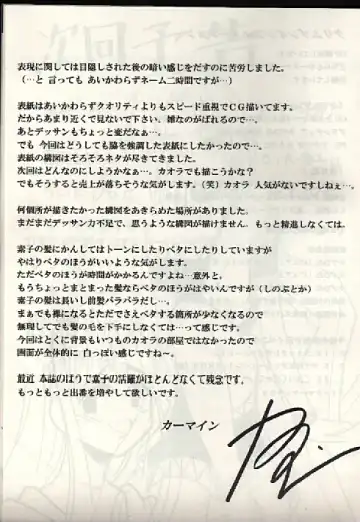 表現に関しては目隠しされた後の暗い感じをだすのに苦労しました。
(…と 言っても あいかわらずネーム二時間ですが…)
表紙はあいかわらずクオリティよりもスピード重視でCG描いてます。
だからあまり近くで見ないで下さい。雑なのがばれるので…。
あとデッサンもちょっと変だなぁ…。
でも 今回はどうしても脇を強調した表紙にしたかったので…。
表紙の構図はそろそろネタが尽きてきました。
次回はどんなのにしようかなぁ…。カオラでも描こうかな?
でもそうすると売上が落ちそうな気がします。(笑) カオラ 人気がないですしねぇ…。
何個所が描きたかった構図をあきらめた場所がありました。
まだまだデッサン力不足で、思うような構図が描けません。もっと精進しなくては。
素子の髪にかんしてはトーンにしたりベタにしたりしていますが
やはりベタのほうがいいような気がします。
ただベタのほうが時間がかかるんですよね…意外と。
もうちょっとまとまった髪ならベタのほうがはやいんですが(しのぶとか)
素子の髪は長いし前髪バラバラだし…。
まぁでも裸になるとただでさえベタする箇所が少なくなるので
無理してでも髪の毛を下手にしなくては…って感じです。
今回はとくに背景もいつものカオラの部屋ではなかったので
画面が全体的に 白っぽい感じですね〜。
最近 本誌のほうで素子の活躍がほとんどなくて残念です。
もっともっと出番を増やして欲しいです。
カーマイン